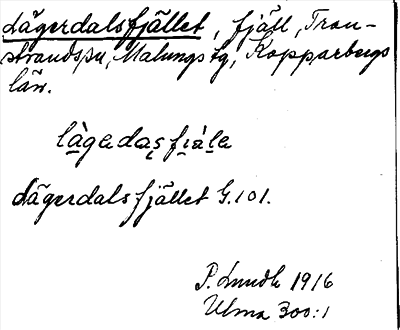 Lägerdalsfjället, fjäll, Tran-
strands sn, Malungs tg, Kopparbergs
län.
làgadasfiàla
Lägerdalsfjället G. 101.
P. Lundh 1916
Ulma 300:1